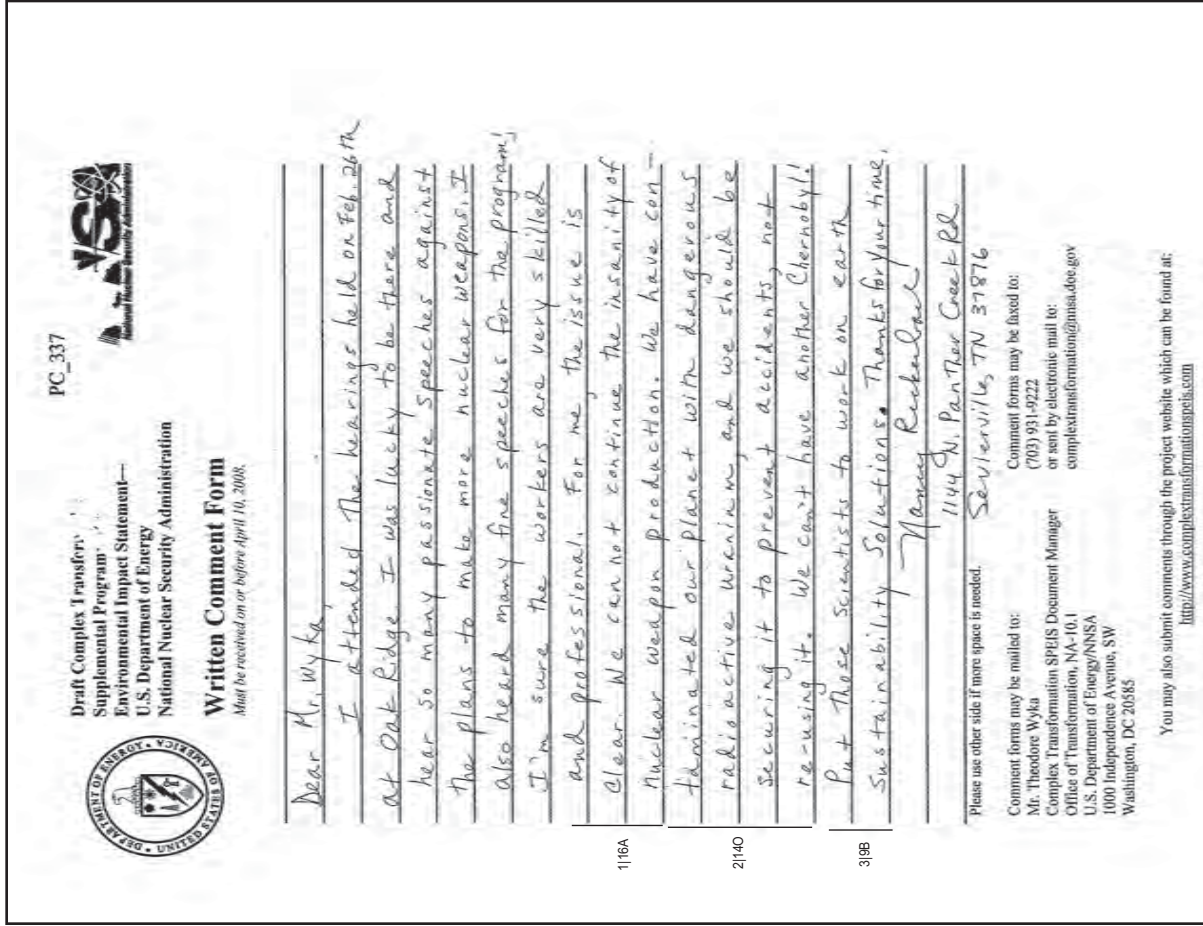 PC_337
Draft Complex Transform
Supplemental Program
Environmental Impact Statement—
U.S. Department of Energy
National Nuclear Security Administration
DEPARTMENT OF ENERGY
UNITED STATES OF AMERICA
NNSA
National Nuclear Security Administration
Written Comment Form
Must be received on or before April 10, 2008.
Dear Mr. Wyka,
I attended The hearings held on Feb. 26th
at Oak Ridge. I was lucky to be there and
hear so many passionate speeches against
the plans to make more nuclear weapons. I
also heard many fine speeches for the program!
I'm sure the workers are very skilled
and professional. For me, the issue is
Clear. We can not continue the insanity of
nuclear weapon production. We have con-
taminated our planet with dangerous
radioactive uranium, and we should be
securing it to prevent accidents, not
re-using it. We can't have another Chernobyl!
Put Those Scientists to work on earth
Sustainability Solutions. Thanks for your time,
Nancy
1144 N. Panther Creek Rd
Sevierville, TN 37876
1|16A
2|14O
3|9B
Please use other side if more space is needed.
Comment forms may be mailed to:
Mr. Theodore Wyka
Complex Transformation SPEIS Document Manager
Office of Transformation, NA-10.1
U.S. Department of Energy/NNSA
1000 Independence Avenue, SW
Washington, DC 20585
Comment forms may be faxed to:
(703) 931-9222
or sent by electronic mail to:
complextransformation@nnsa.doe.gov
You may also submit comments through the project website which can be found at:
http://www.complextransformationspeis.com